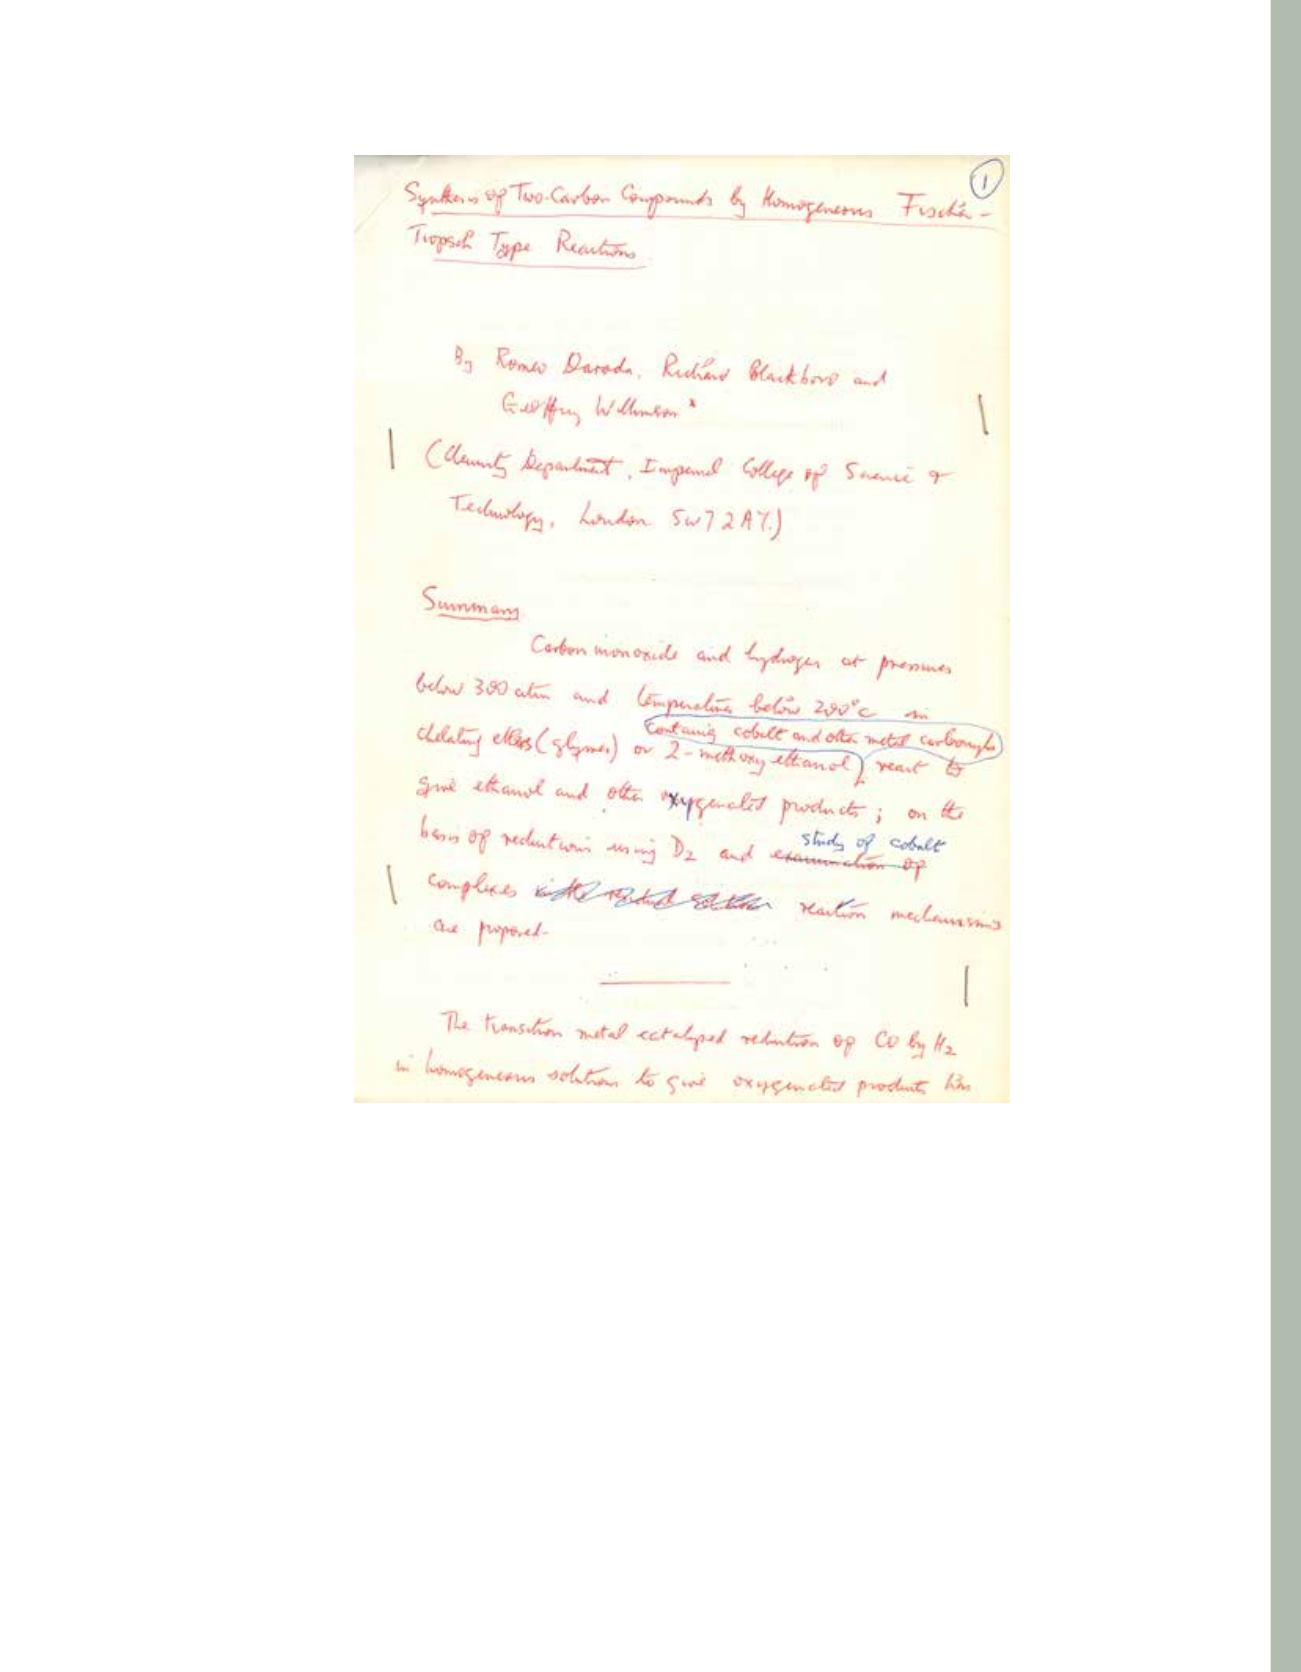 1
Synthesis of Two-Carbon Compounds by Homogeneous Fischer-
Tropsch Type Reactions
By Romeo Daroda, Richard Blackborow and
Geoffrey Wilkinson*
(Chemistry Department, Imperial College of Science &
Technology, London SW7 2AY.)
Summary
Carbon monoxide and hydrogen at pressures
below 300 atm and temperatures below 200°C in
containing cobalt and other metal carbonyls
chelating ethers (glymes) or 2-methoxy ethanol, react to
give ethanol and other oxygenated products; on the
study of cobalt
basis of reductions using D2 and examination of
complexes reaction mechanisms
are proposed.
The transition metal catalysed reduction of CO by H2
in homogeneous solution to give oxygenated products has